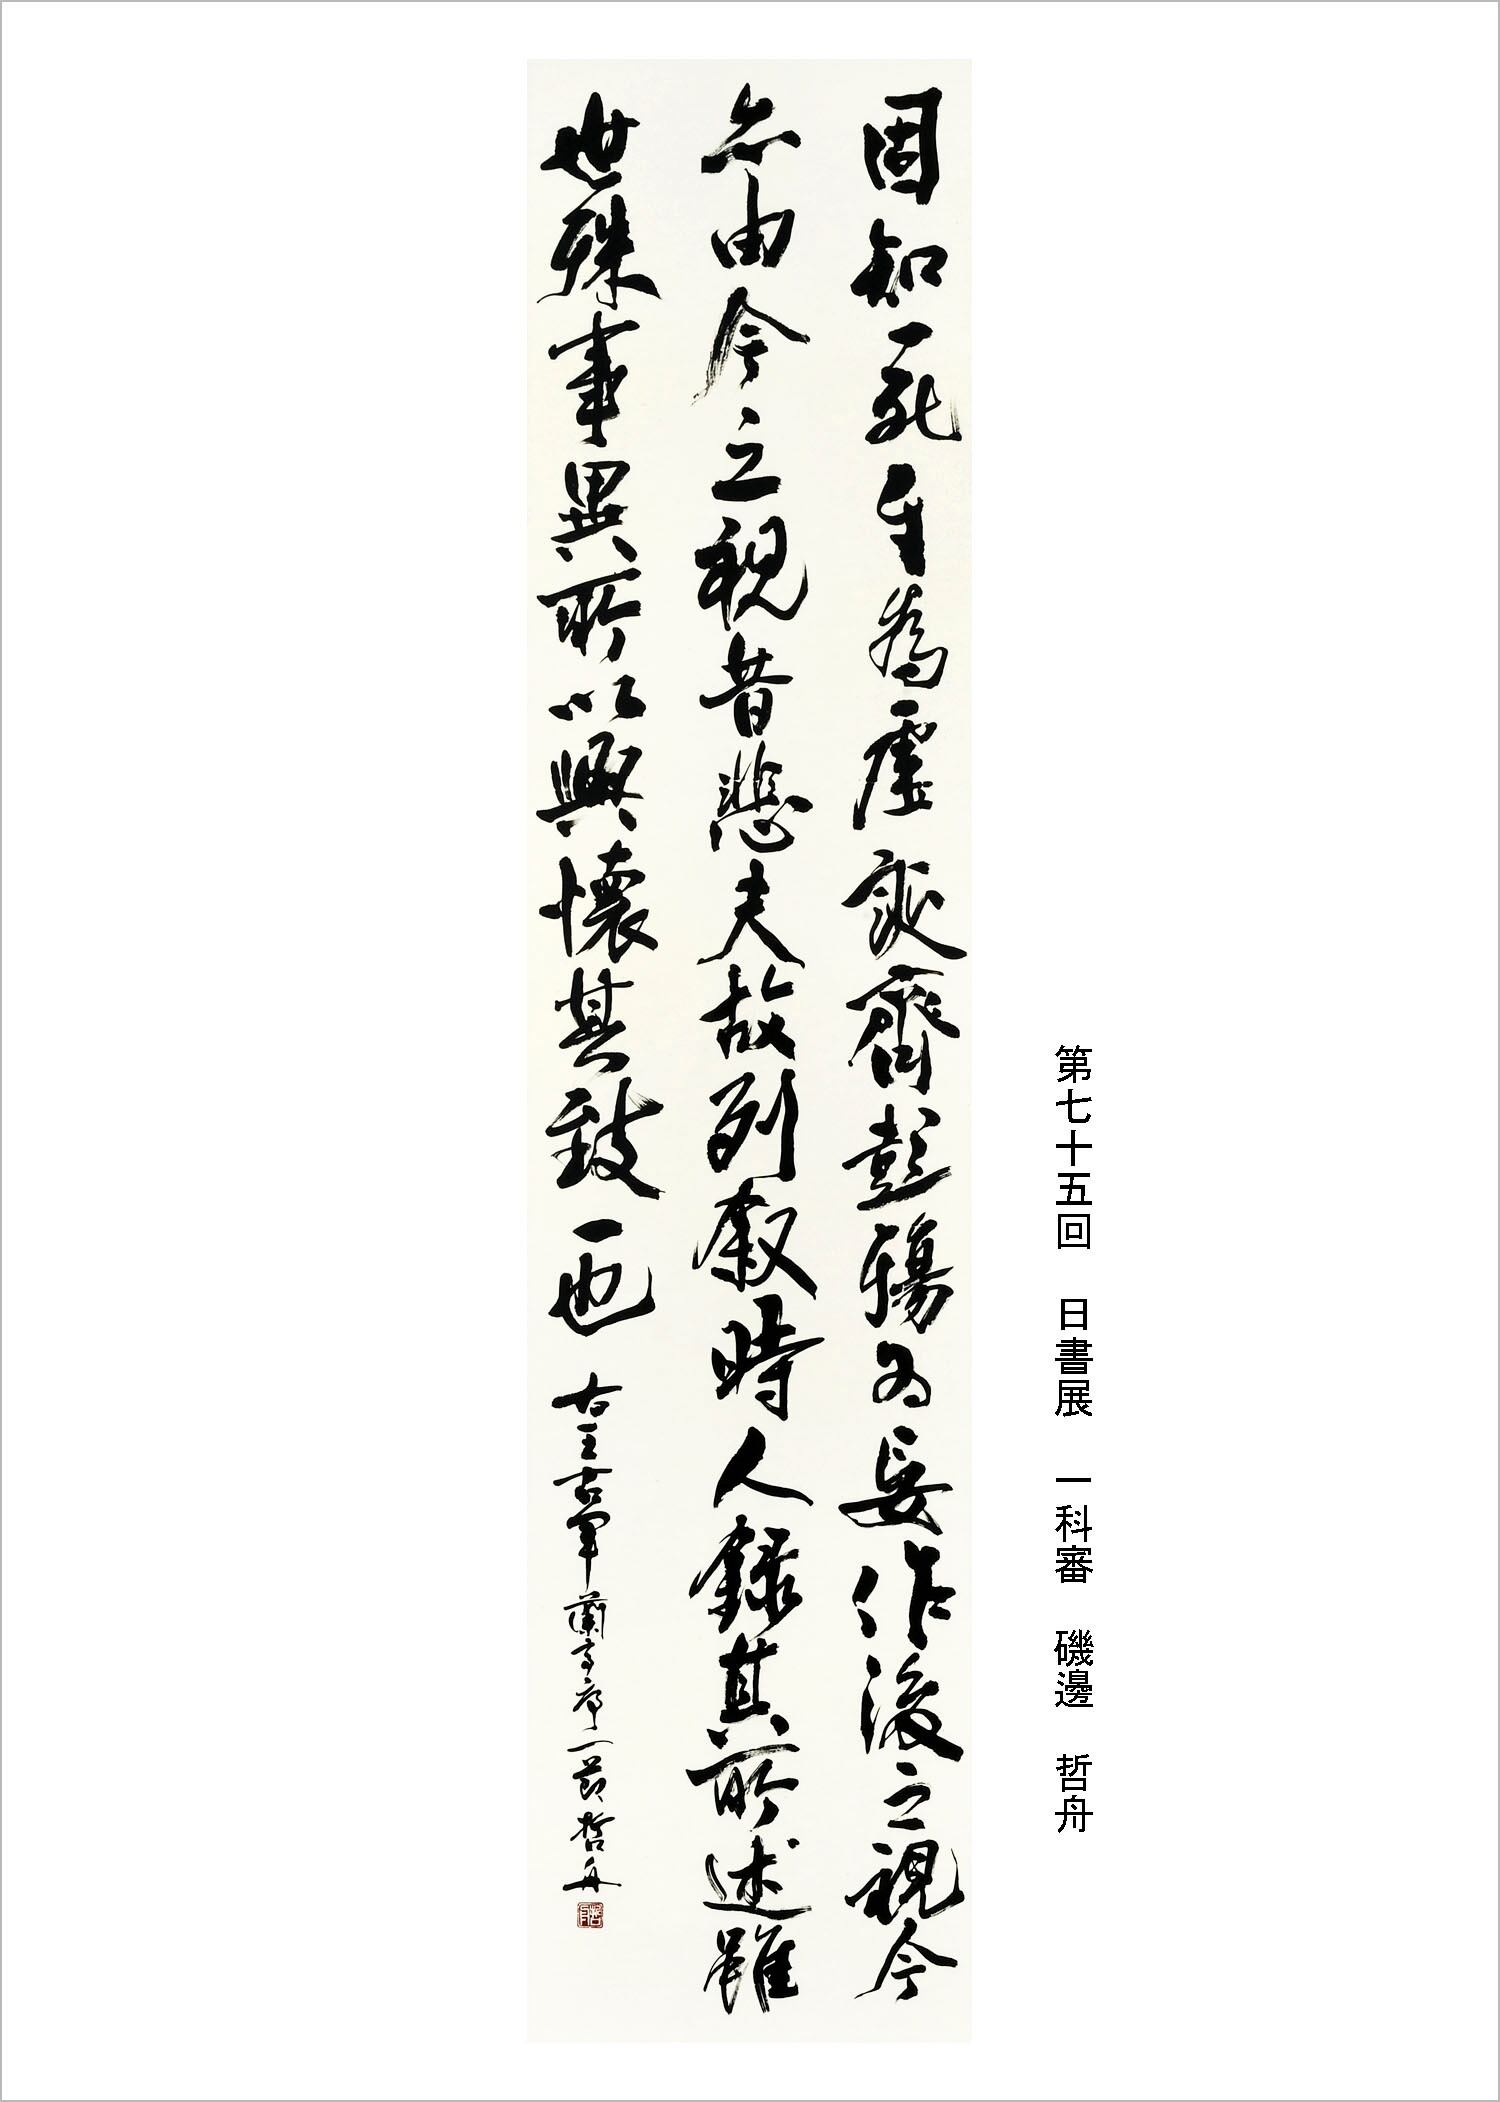 第七十五回　日書展　一科審　磯邊　哲舟
固知一死生為虚誕齊彭殤為妄作後之視今
亦由今之視昔悲夫故列叙時人録其所述雖
世殊事異所以興懷其致一也 右王右軍蘭亭序一節 哲舟